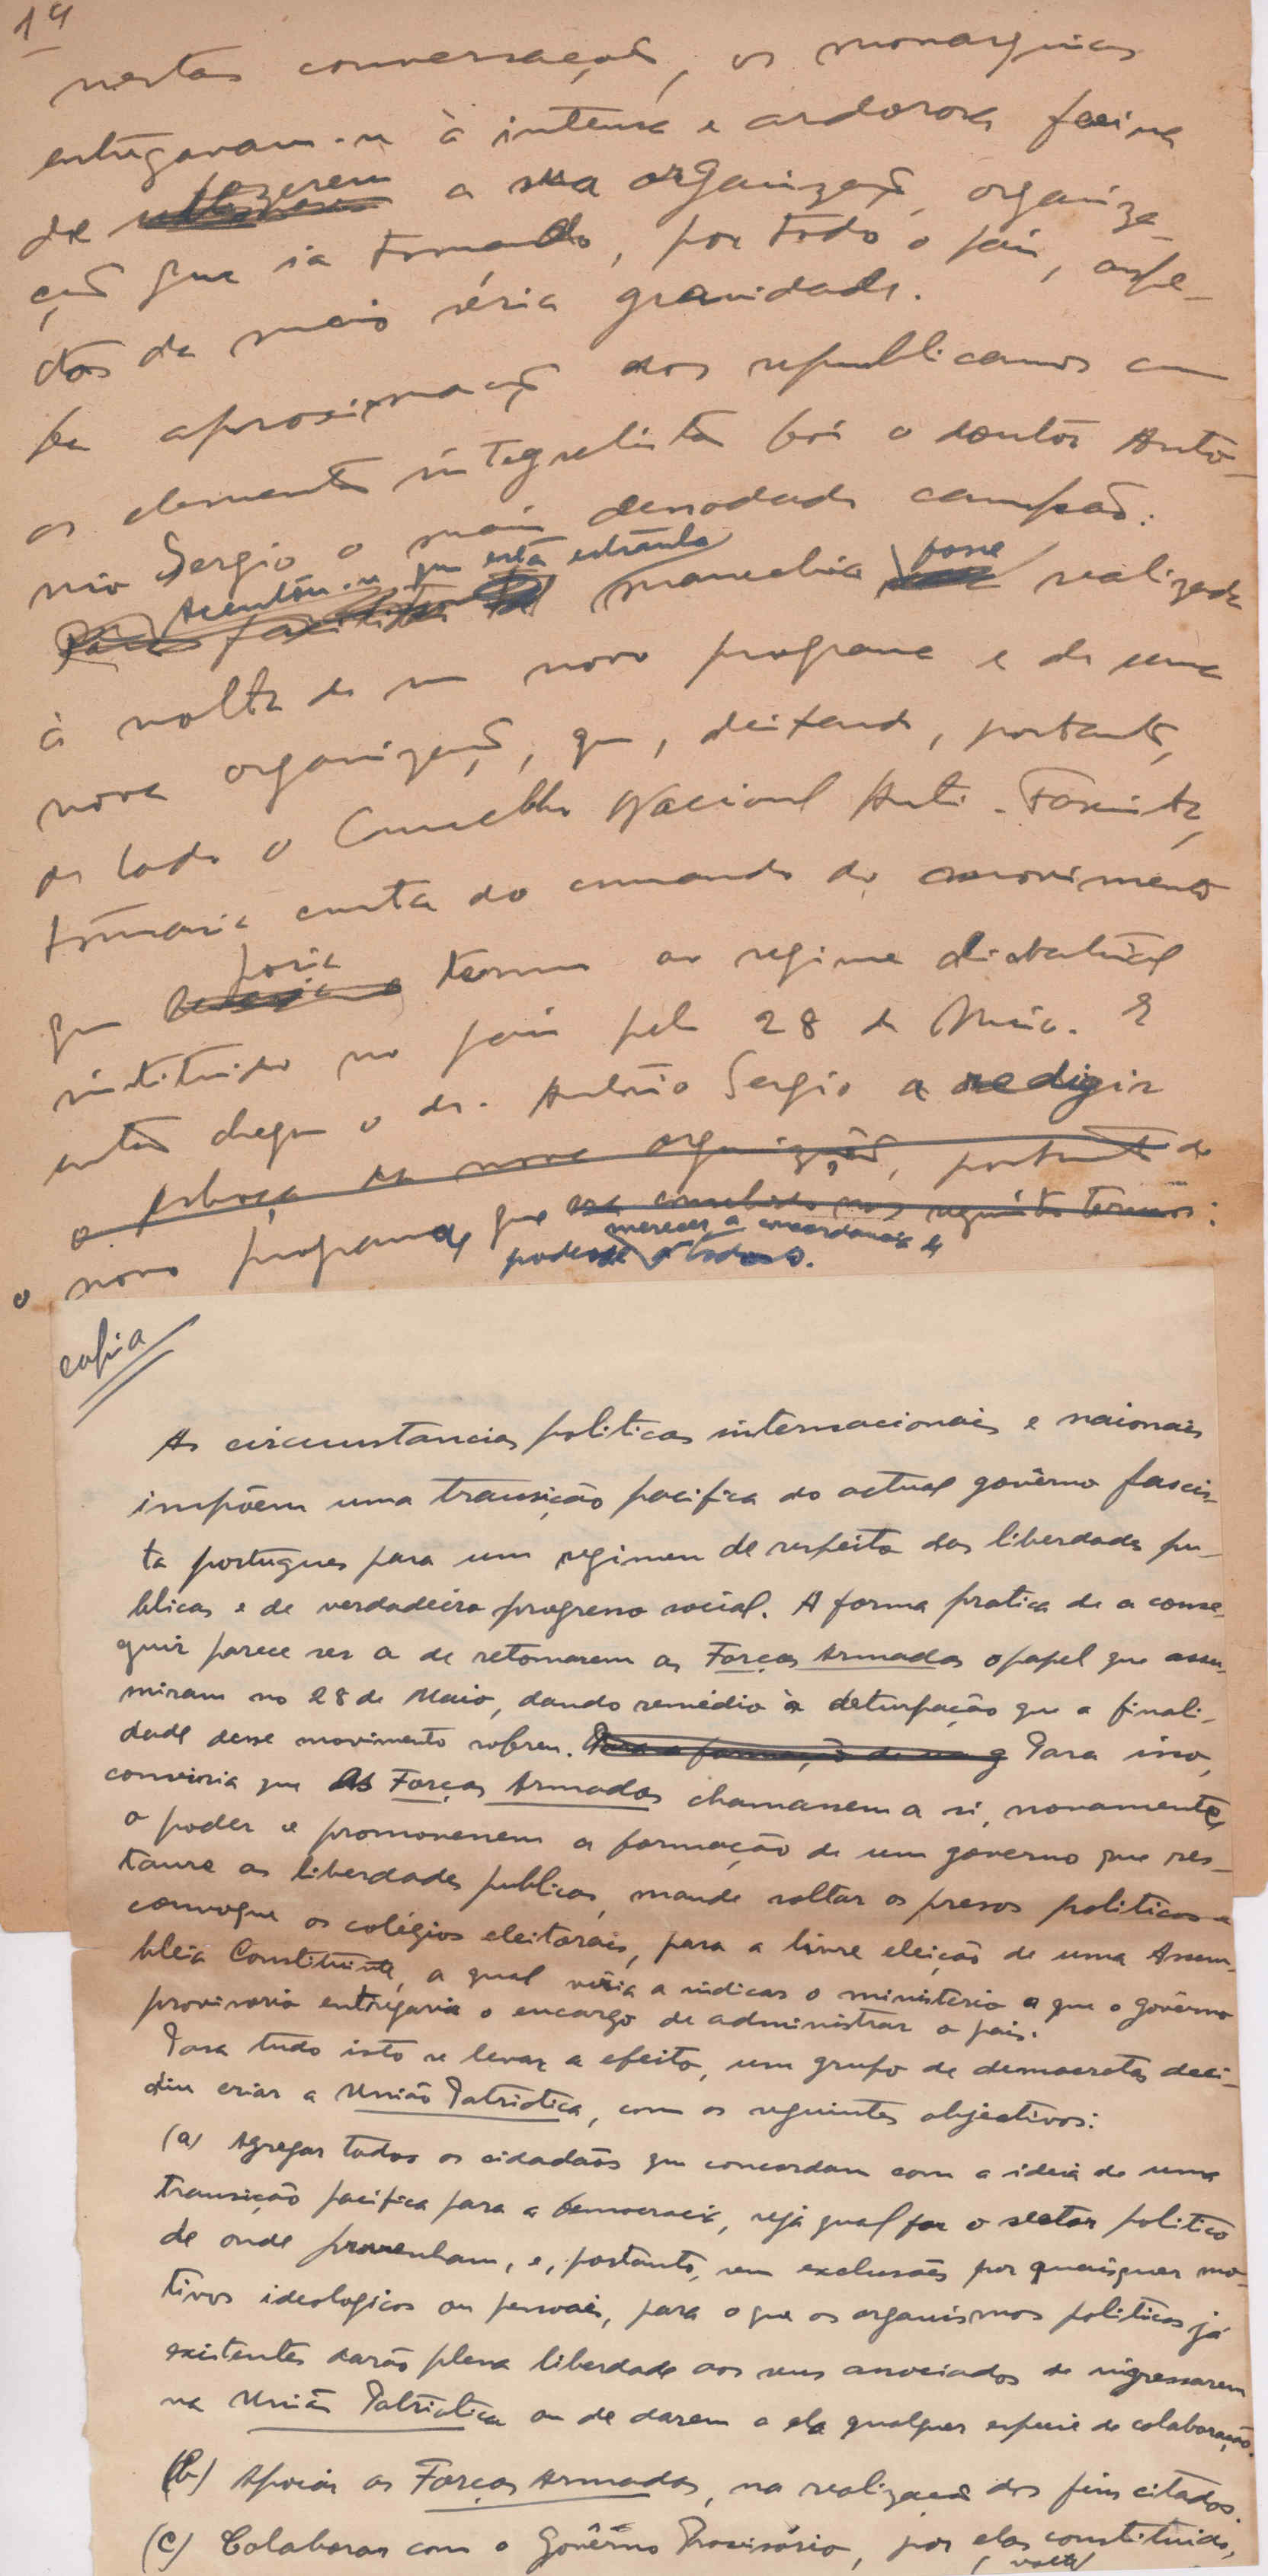 14
nestas conversações, os monarquicos
entregavam-se à intensa e ardorosa faina
de fazerem a sua organização, organiza-
ção que ia tomando, por todo o país, aspe-
ctos da mais séria gravidade.
da aproximação dos republicanos com
os elementos integralistas foi o doutor Antó-
nio Sergio o mais denodado campeão.
Acentúou-se que esta estranha manobra fosse realizada
à volta de um novo programa e de uma
nova organização, que, deitando, portanto,
de lado o Conselho Nacional Anti-Fascista,
tomaria conta do comando do movimento
que poria termo ao regime dictatorial
instituido no país pelo 28 de Maio. E
então chega o dr. António Sergio a redigir
o esboço da nova organização, portanto do
o novo programa, que era concebido nos seguintes termos:
podesse merecer a concordancia de todos.
copia
As circunstancias politicas internacionais e naionais
impõem uma transição pacifica do actual govêrno fascis-
ta portugues para um regimen de respeito das liberdades pu-
blicas e de verdadeiro progresso social. A forma pratica de a conse-
guir parece ser a de retomarem as Forças Armadas o papel que assu-
miram no 28 de Maio, dando remédio à deturpação que a finali-
dade desse movimento sofreu. Para a formação de um g Para isso,
conviria que as Forças Armadas chamassem a si, novamente,
o poder e promovessem a formação de um governo que res-
taure as liberdades publicas, mande soltar os presos politicos e
convoque os colégios eleitorais, para a livre eleição de uma Assem-
bleia Constituinte, a qual viria a indicar o ministerio a que o govêrno
provisorio entregaria o encargo de administrar o pais.
Para tudo isto se levar a efeito, um grupo de democratas deci-
diu criar a União Patriotica, com os seguintes objectivos:
(a) Agregar todos os cidadãos que concordam com a ideia de uma
transição pacifica para a democracia, seja qual for o sector politico
de onde provenham, e, portanto, sem exclusões por quaisquer mo-
tivos ideologicos ou pessoais, para o que os organismos politicos já
existentes darão plena liberdade aos seus associados de ingressarem
na União Patriotica ou de darem a ela qualquer especie de colaboração.
(b) Apoiar as Forças Armadas, na realização dos fins citados.
(c) Colaborar com o Govêrno Provisório, por elas constituido,
volte